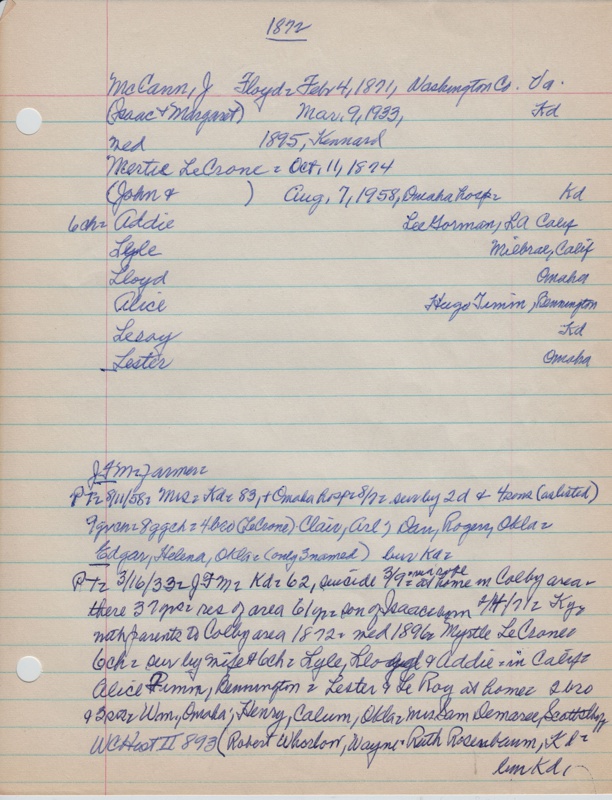 1872
McCann, J Floyd = Feb 4, 1871, Washington Co. Va.
(Isaac & Margaret) Mar. 9, 1933, Kd
med 1895, Kennard
Mertie LeCrone = Oct. 11, 1874
(John & ) Aug. 7, 1958, Omaha hosp = Kd
6ch = Addie Lee Gorman, LA Calif
Lyle Milbrae, Calif
Lloyd Omaha
Alice Hugo Timm, Bennington
Leroy Kd
Lester Omaha
JFM = farmer =
PT = 8/11/58 = Mrs = Kd = 83, + Omaha hosp = 8/7 = sur by 2d & 4 sons (as listed)
9 grch = 8 ggch = 4 bro (LeCrone) Clair, Arl; Dan, Rogers, Okla =
Edgar, Helena, Okla = (only 3 named) bur Kd =
PT = 3/16/33 = JFM = Kd = 62, suicide 3/9 = at home in Colby area =
there 37 yrs = res of area 61 yr = son of Isaac = born 2/4/71 = Ky =
with parents to Colby area 1872 = med 1896 = Myrtle LeCrone =
6ch = sur by wife & 6ch = Lyle, Lloyd & Addie = in Calif =
Alice Timm, Bennington = Lester & Le Roy at home = 2 bro
& 3 sis = Wm, Omaha; Henry, Calum, Okla = Mrs Sam Demaree, Scottsbluff
WC Hist II 893 (Robert Whorlow, Wayne & Ruth Rosenbaum, Kd =
bur Kd,